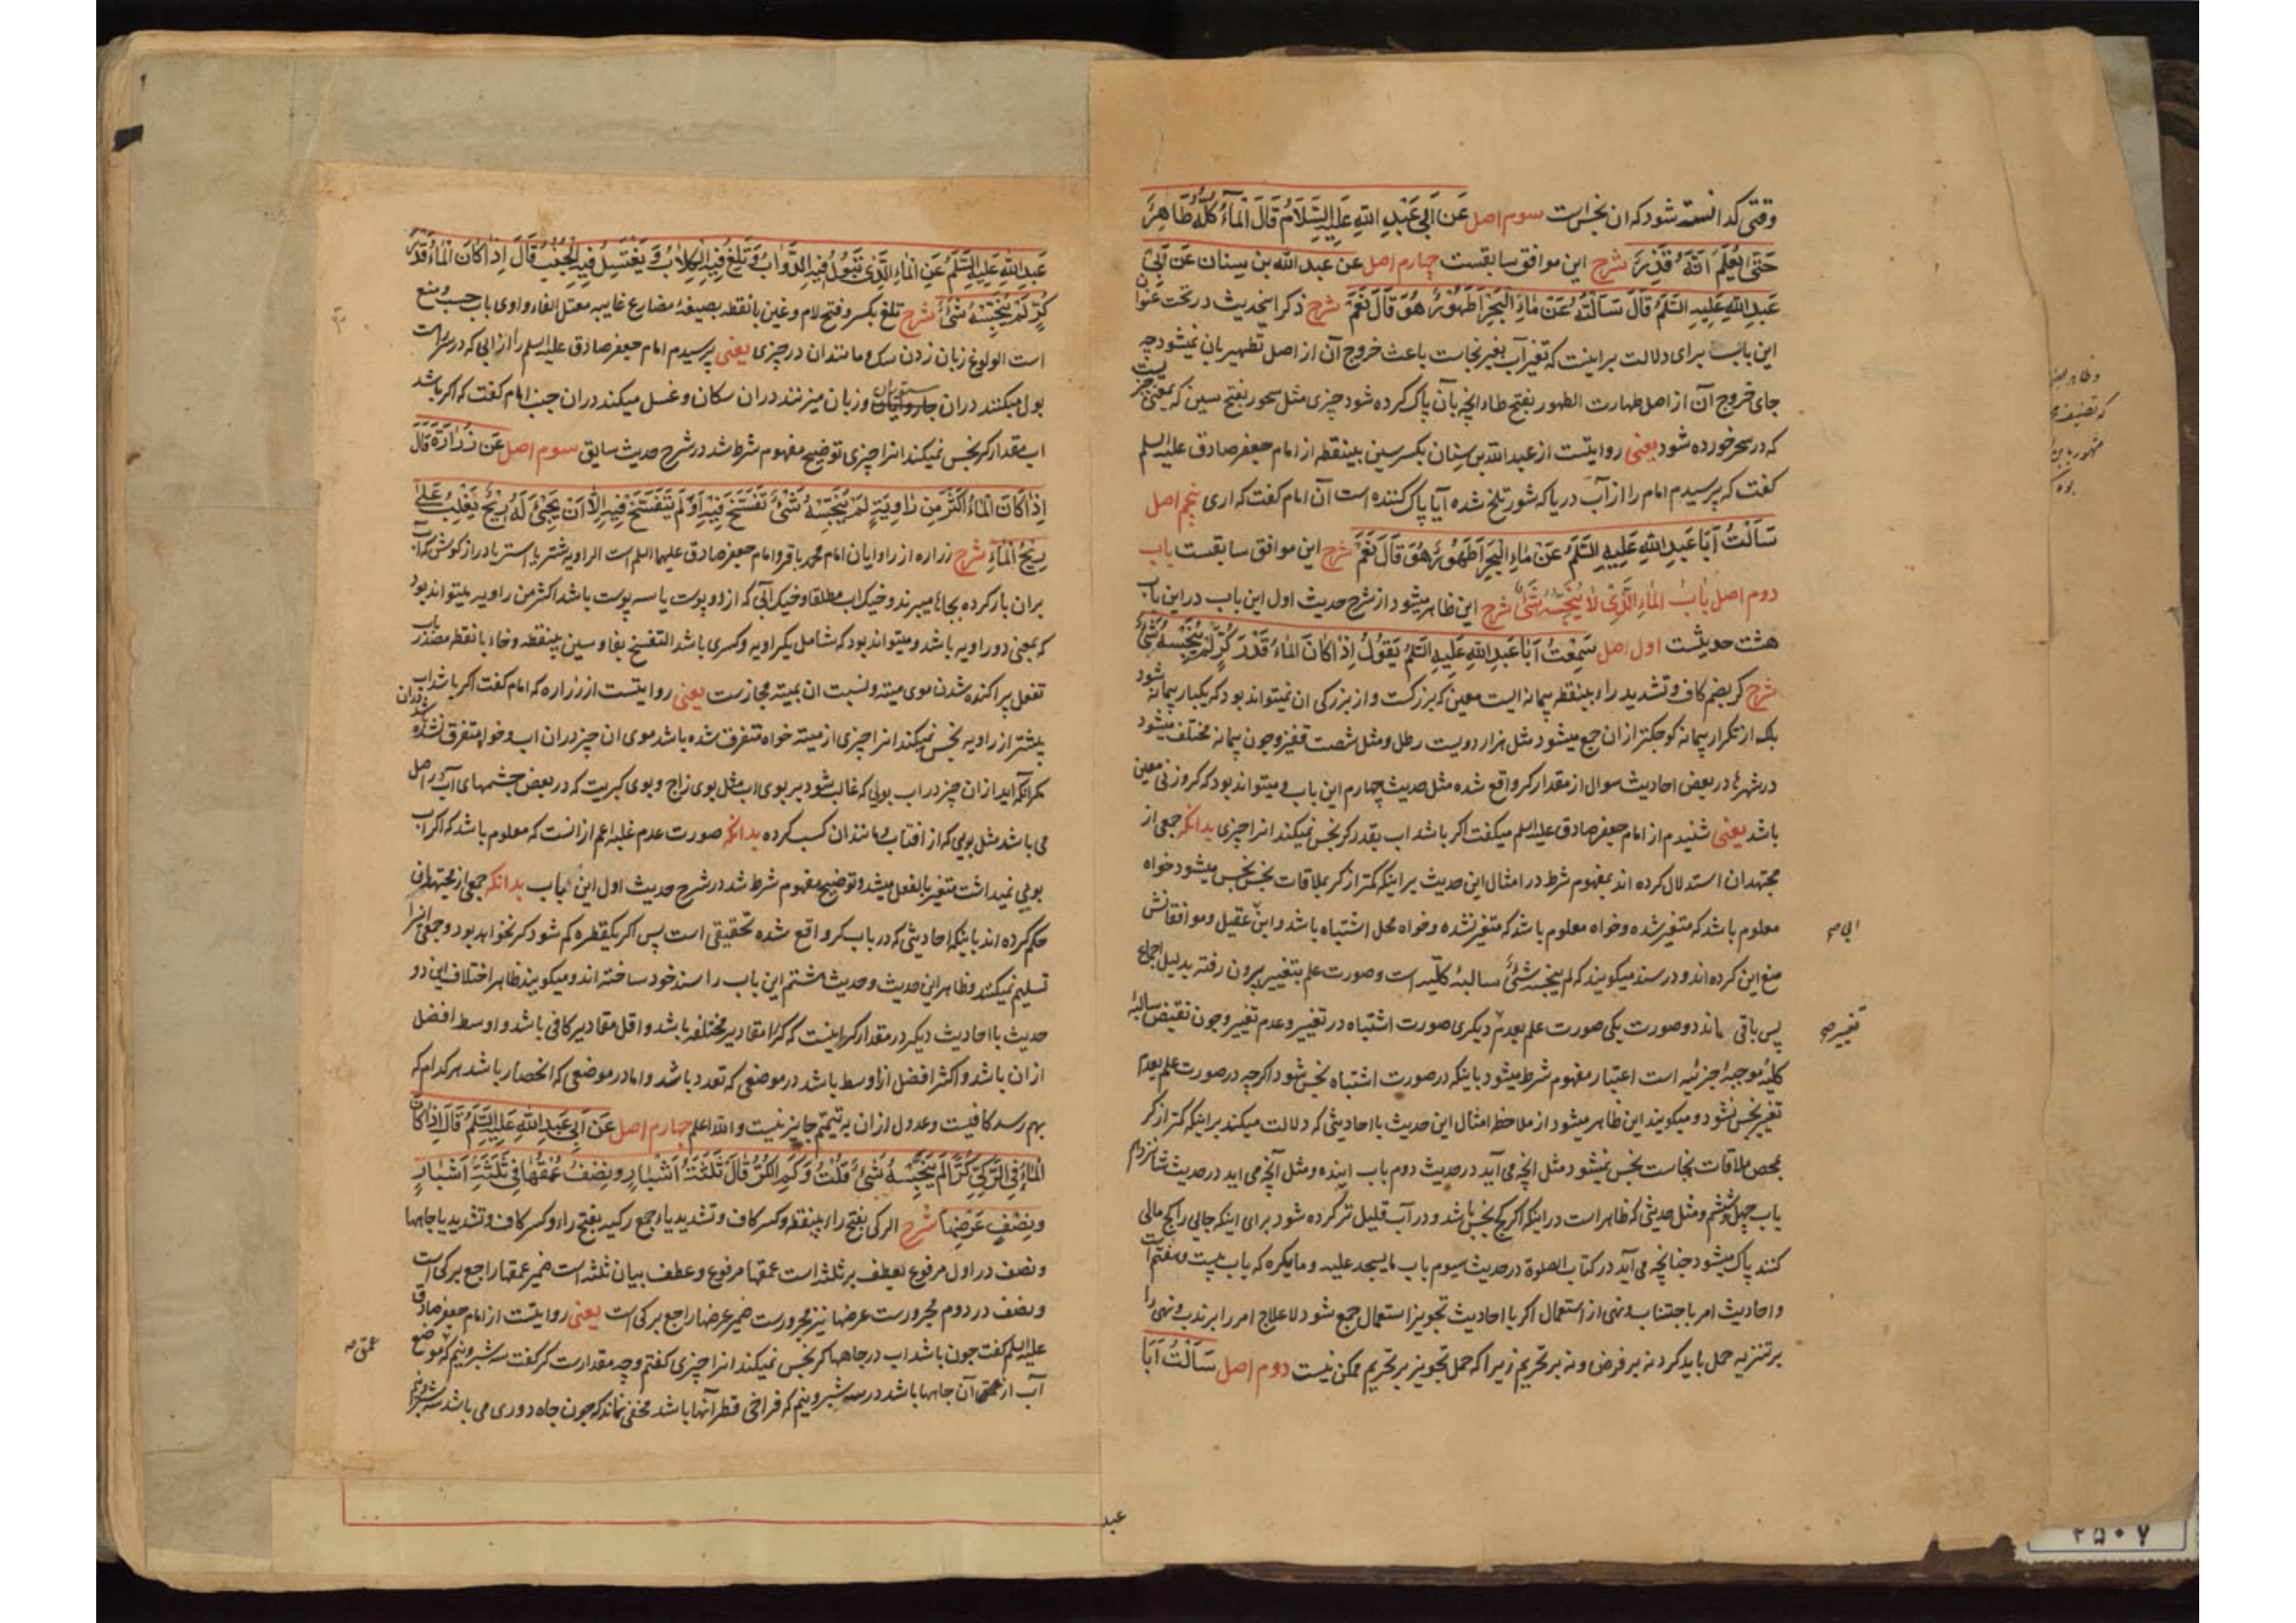 وقتی که دانسته شود که ان نجس است سوم اصل عَن اَبی عَبْدِ اللهِ عَلَیهِ السَّلَامُ قَالَ اَلْمَاءُ کُلُّهُ طَاهِرٌ
حَتّی یُعْلَمَ اَنَّهُ قَذِرٌ شرح این موافق سابقست چهارم اصل عن عبد الله بن سِنان عَن اَبی
عَبدِ اللهِ عَلَیهِ السَّلَم قَالَ سَاَلْتُهُ عَنْ مَاءِ الْبَحْرِ اَطَهُوْرٌ هُوَ قَالَ نَعَمْ شرح ذکر اینحدیث در تحت عنوان
این باب برای دلالت بر اینست که تغیر آب بغیر نجاست باعث خروج آن از اصل تطهیر بان نمیشود چه
جای خروج آن از اصل طهارت الطهور بفتح طاء انچه بآن پاک کرده شود چیزی مثل سحور بفتح سین که بمعنی چیزیست
که در سحر خورده شود یعنی روایتست از عبد الله بن سِنان بکسر سین بینقطه از امام جعفر صادق علیه السلم
کفت که پرسیدم امام را از آب دریا که شور تلخ شده آیا پاک کننده است آن امام کفت که اری پنجم اصل
سَاَلْتُ اَبَا عَبدِ اللهِ عَلَیهِ السَّلَمُ عَنْ مَاءِ الْبَحْرِ اَطَهُوْرٌ هُوَ قَالَ نَعَمْ شرح این موافق سابقست باب
دوم اصل بَابُ المَاءِ الَّذِی لَا یُنَجِّسُهُ شَیْءٌ شرح این ظاهر میشود از شرح حدیث اول این باب در این باب
هشت حدیثست اول اصل سَمِعْتُ اَبَا عَبدِ اللهِ عَلَیهِ السَّلَمُ یَقُوْلُ اِذَا کَانَ المَاءُ قَدْرَ کُرٍّ لَمْ یُنَجِّسْهُ شَیْءٌ
شرح کر بضم کاف و تشدید راء بینقطه پیمانه ایست معین که بزرکست و از بزرکی ان نمیتواند بود که یکبار پیمانه شود
بلکه از تکرار پیمانه کوچکتر از ان جمع میشود مثل هزار دویست رطل و مثل شصت قفیز و چون پیمانه مختلف میشود
در شهرها در بعض احادیث سوال از مقدار کر واقع شده مثل حدیث چهارم این باب و میتواند بود که کر وزنی معین
باشد یعنی شنیدم از امام جعفر صادق علیه السلم میکفت اکر باشد اب بقدر کر نجس نمیکند انرا چیزی بدانکه جمعی از
مجتهدان استدلال کرده اند بمفهوم شرط در امثال این حدیث بر اینکه کمتر از کر بملاقات نجس نجس میشود خواه
معلوم باشد که متغیر شده و خواه معلوم باشد که متغیر نشده و خواه محل اشتباه باشد و ابن عقیل و موافقانش
ابی صح
منع این کرده اند و در سند میکویند که لم ینجسه شیء سالبهٔ کلّیه است و صورت علم بتغییر بیرون رفته بدلیل اجماع
پس باقی ماند دو صورت یکی صورت علم بعدم دیکری صورت اشتباه در تغییر و عدم تغییر و چون نقیض سالبهٔ
تغییر صح
کلیه موجبهٔ جزئیه است اعتبار مفهوم شرط میشود باینکه در صورت اشتباه نجس شود اکرچه در صورت علم بعدم
تغیر نجس نشود و میکویند این ظاهر میشود از ملاحظه امثال این حدیث با احادیثی که دلالت میکند بر اینکه کمتر از کر
بمحض ملاقات نجاست نجس نمیشود مثل انچه می آید در حدیث دوم باب اینده و مثل آنچه می اید در حدیث شانزدهم
باب چهل و ششم و مثل حدیثی که ظاهر است در اینکه اکر کچ نجس باشد و در آب قلیل تر کرده شود برای اینکه جایی را کچ مالی
کنند پاک میشود چنانچه می آید در کتاب الصلوة در حدیث سیوم باب ما یسجد علیه و ما یکره که باب بیست و هفتم است
و احادیث امر باجتناب و نهی از استعمال اکر با احادیث تجویز استعمال جمع شود لا علاج امر را بر ندب و نهی را
بر تنزیه حمل باید کرد نه بر فرض و نه بر تحریم زیرا که حمل تجویز بر تحریم ممکن نیست دوم اصل سَاَلْتُ اَبَا
عبد
وظاهر
که تصنیف
مشهور
بوده
عَبدِ اللهِ عَلَیهِ السَّلَمُ عَنِ المَاءِ الَّذِی تَبُوْلُ فِیهِ الدَّوَابُّ وَ تَلَغُ فِیهِ الْکِلَابُ وَ یَغْتَسِلُ فِیهِ الْجُنُبُ قَالَ اِذَا کَانَ الْمَاءُ قَدْرَ
کُرٍّ لَمْ یُنَجِّسْهُ شَیْءٌ شرح تلغ بکسر و فتح لام و غین بانقطه بصیغهٔ مضارع غایبه معتل الفاء واوی باب حسب و منع
است الولوغ زبان زدن سک و مانند ان در چیزی یعنی پرسیدم امام جعفر صادق علیه السلم را از ابی که در سراست
بول میکنند دران چاروایان وزبان میزنند دران سکان و غسل میکند دران جنب امام کفت که اکر باشد
اب مقدار کر نجس نمیکند انرا چیزی توضیح مفهوم شرط شد در شرح حدیث سابق سوم اصل عَن زُرَارَةَ قَالَ
اِذَا کَانَ الْمَاءُ اَکْثَرَ مِن رَاوِیَةٍ لَمْ یُنَجِّسْهُ شَیْءٌ تَفَسَّخَ فِیهِ اَوْ لَمْ یَتَفَسَّخْ فِیهِ اِلَّا اَنْ یَجِیْءَ لَهُ رِیْحٌ یَغْلِبُ عَلیٰ
رِیْحِ الْمَاءِ شرح زراره از راویان امام محمد باقر و امام جعفر صادق علیهما السلم است الراویه شتر یا استر یا دراز کوش که آب
بران بار کرده بجاها میبرند و خیک اب مطلقا و خیک آبی که از دو پوست یا سه پوست باشد اکثر من راویه میتواند بود
که بمعنی دو راویه باشد و میتواند بود که شامل یکراویه و کسری باشد التفسخ بفا و سین بینقطه و خاء بانقطه مصدر باب
تفعل پراکنده شدن موی میته و نسبت ان بمیته مجازست یعنی روایتست از زراره که امام کفت اکر باشد اب
بیشتر از راویه نجس نمیکند انرا چیزی از میته خواه متفرق شده باشد موی ان چیز دران اب و خواه متفرق نشده
مکر آنکه آید از ان چیز در اب بویی که غالب شود بر بوی اب مثل بوی زاج و بوی کبریت که در بعض چشمهای آب در اصل
می باشد مثل بویی که از افتاب و مانند ان کسب کرده بدانکه صورت عدم غلبه اعم از انست که معلوم باشد که اکر اب
بویی نمیداشت متغیر بالفعل میشد و توضیح مفهوم شرط شد در شرح حدیث اول این باب بدانکه جمعی از مجتهدان
حکم کرده اند باینکه احادیثی که در باب کر واقع شده تحقیقی است پس اکر یکقطره کم شود کر نخواهد بود و جمعی انرا
تسلیم نمیکنند و ظاهر این حدیث و حدیث هشتم این باب را سند خود ساخته اند و میکویند ظاهر اختلاف این دو
حدیث با احادیث دیکر در مقدار کر اینست که کر را مقادیر مختلفه باشد و اقل مقادیر کافی باشد و اوسط افضل
از ان باشد و اکثر افضل از اوسط باشد در موضعی که تعدد باشد و اما در موضعی که انحصار باشد هر کدام که
بهم رسد کافیست و عدول از ان به تیمّم جایز نیست والله اعلم چهارم اصل عَن اَبی عَبدِ اللهِ عَلَیهِ السَّلَمُ قَالَ اِذَا کَانَ
الْمَاءُ فِی الرَّکِیِّ کُرًّا لَمْ یُنَجِّسْهُ شَیْءٌ قُلْتُ وَ کَمِ الکُرُّ قَالَ ثَلٰثَةُ اَشْبَارٍ وَنِصْفٌ عُمْقُهَا فِی ثَلٰثَةِ اَشْبَارٍ
وَنِصْفٍ عَرْضِهَا شرح الرکی بفتح راء بینقطه و کسر کاف و تشدید یاء جمع رکیه بفتح راء و کسر کاف و تشدید یا چاهها
و نصف در اول مرفوع بعطف بر ثلثه است عمقها مرفوع و عطف بیان ثلثه است ضمیر عمقها راجع بر کی است
و نصف در دوم مجرورست عرضها نیز مجرورست ضمیر عرضها راجع بر کی است یعنی روایتست از امام جعفر صادق
علیه السلم کفت چون باشد اب در چاهها کر نجس نمیکند انرا چیزی کفتم و چه مقدارست کر کفت سه شبر و نیم که موضع
عمق صح
آب از عمق آن چاهها باشد در سه شبر و نیم که فراخی قطر آنها باشد مخفی نماند که چون چاه دوری می باشد سه شبر و نیم
۲۵۰۷